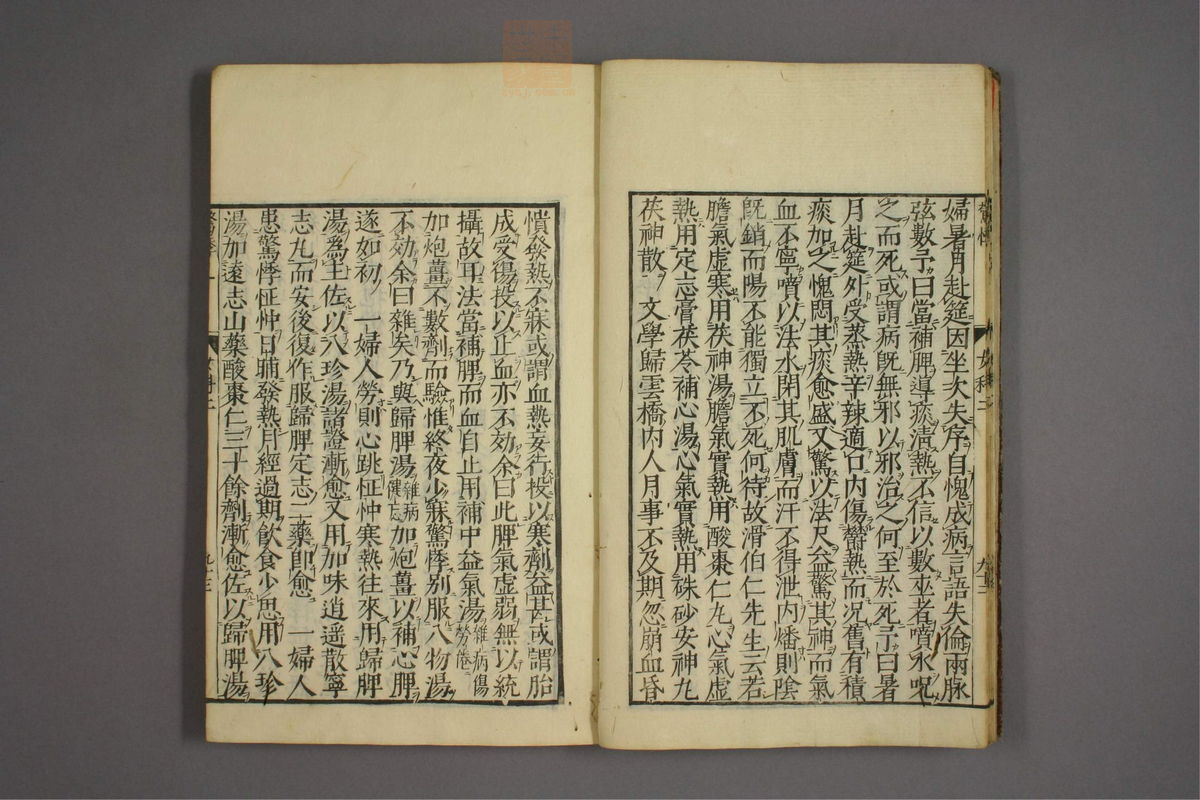 婦暑月赴筵因坐次失序自愧成病言語失倫兩脉
弦數予曰當補脾導痰清熱不信以數巫者噴水呪
之而死或謂病既無邪以邪治之何至於死予曰暑
月赴筵外受蒸熱辛辣適口内傷鬱熱而况舊有積
痰加之愧悶其痰愈盛又驚以法尺益驚其神而氣
血不寧噴以法水閉其肌膚而汗不得泄内燔則陰
既銷而陽不能獨立不死何待故滑伯仁先生云若
膽氣虛寒用茯神湯膽氣實熱用酸棗仁丸心氣虛
熱用定志膏茯苓補心湯心氣實熱用硃砂安神丸
茯神散 文學歸雲橋内人月事不及期忽崩血昏
女科二
憒發熱不寐或謂血熱妄行投以寒劑益甚或謂胎
成受傷投以止血亦不効余曰此脾氣虛弱無以統
攝故耳法當補脾而血自止用補中益氣湯雜病勞倦傷
加炮薑不數劑而驗惟終夜少寐驚悸别服八物湯
不効余曰雜矣乃與歸脾湯雜病健忘加炮薑以補心脾
遂如初 一婦人勞則心跳怔忡寒熱往來用歸脾
湯爲主佐以八珍湯諸證漸愈又用加味逍遥散寧
志丸而安後復作服歸脾定志二藥即愈 一婦人
患驚悸怔忡日晡發熱月經過期飲食少思用八珍
湯加遠志山藥酸棗仁三十餘劑漸愈佐以歸脾湯